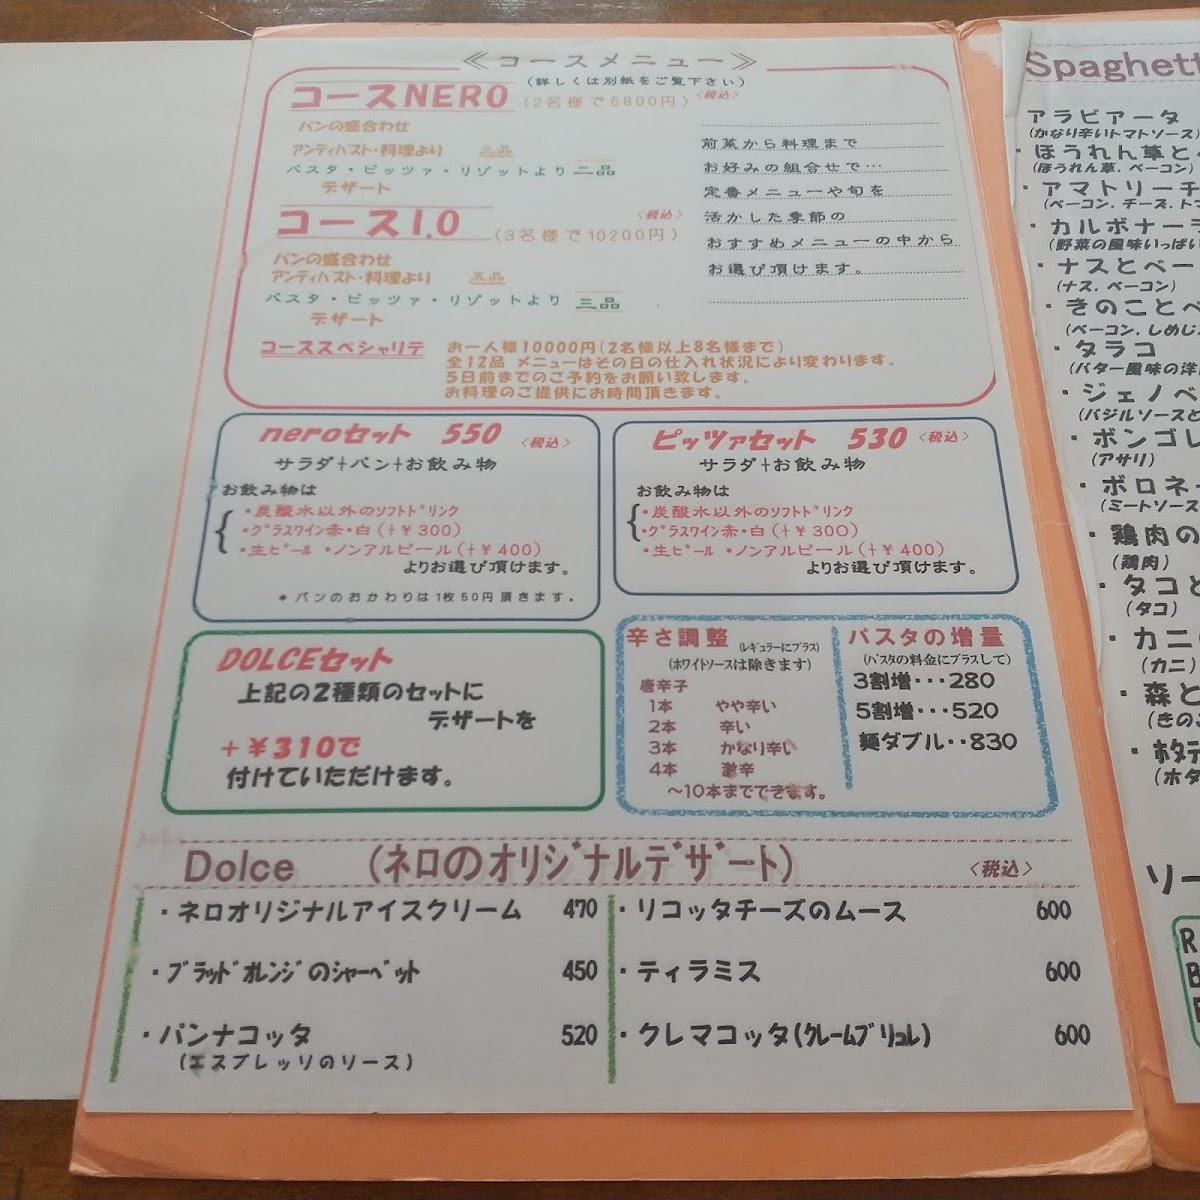 ≪コースメニュー≫
(詳しくは別紙をご覧下さい)
コースNERO (2名様で6800円) <税込>
パンの盛合わせ
アンティパスト・料理より 三品
パスタ・ピッツァ・リゾットより 二品
デザート
コース1.0 (3名様で10200円) <税込>
パンの盛合わせ
アンティパスト・料理より 五品
パスタ・ピッツァ・リゾットより 三品
デザート
前菜から料理まで
お好みの組合せで…
定番メニューや旬を
活かした季節の
おすすめメニューの中から
お選び頂けます。
コーススペシャリテ お一人様10000円(2名様以上8名様まで)
全12品 メニューはその日の仕入れ状況により変わります。
5日前までのご予約をお願い致します。
お料理のご提供にお時間頂きます。
neroセット 550 <税込>
サラダ+パン+お飲み物
お飲み物は
・炭酸水以外のソフトドリンク
・グラスワイン赤・白(+¥300)
・生ビール ・ノンアルビール(+¥400)
よりお選び頂けます。
* パンのおかわりは1枚50円頂きます.
ピッツァセット 530 <税込>
サラダ+お飲み物
お飲み物は
・炭酸水以外のソフトドリンク
・グラスワイン赤・白(+¥300)
・生ビール ・ノンアルビール(+¥400)
よりお選び頂けます。
DOLCEセット
上記の2種類のセットに
デザートを
+¥310で
付けていただけます。
辛さ調整 (レギュラーにプラス)
(ホワイトソースは除きます)
唐辛子
1本 やや辛い
2本 辛い
3本 かなり辛い
4本 激辛
~10本までできます。
パスタの増量
(パスタの料金にプラスして)
3割増・・・280
5割増・・・520
麺ダブル・・830
Dolce (ネロのオリジナルデザート) <税込>
・ネロオリジナルアイスクリーム 470
・ブラッドオレンジのシャーベット 450
・パンナコッタ 520
(エスプレッソのソース)
・リコッタチーズのムース 600
・ティラミス 600
・クレマコッタ(クレームブリュレ) 600
Spaghett
アラビアータ
(かなり辛いトマトソース)
・ほうれん草と
(ほうれん草、ベーコン)
・アマトリーチ
(ベーコン、チーズ、トマ
・カルボナーラ
(野菜の風味いっぱい
・ナスとベー
(ナス、ベーコン)
・きのことベ
(ベーコン、しめじ、
・タラコ
(バター風味の洋
・ジェノベ
(バジルソースと
・ボンゴレ
(アサリ)
・ボロネー
(ミートソース
・鶏肉の
(鶏肉)
・タコと
(タコ)
・カニ
(カニ)
・森と
(きのこ
・ホタテ
(ホタ
ソー
R
B